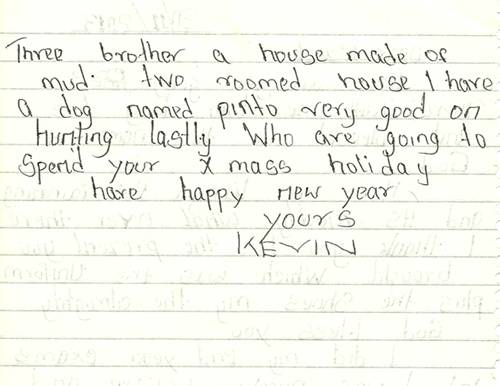 Three brother a house made of
mud. two roomed house I have
a dog named pinto very good on
hunting lastly Who are going to
spend your X mass holiday
have happy new year
YOURS
KEVIN